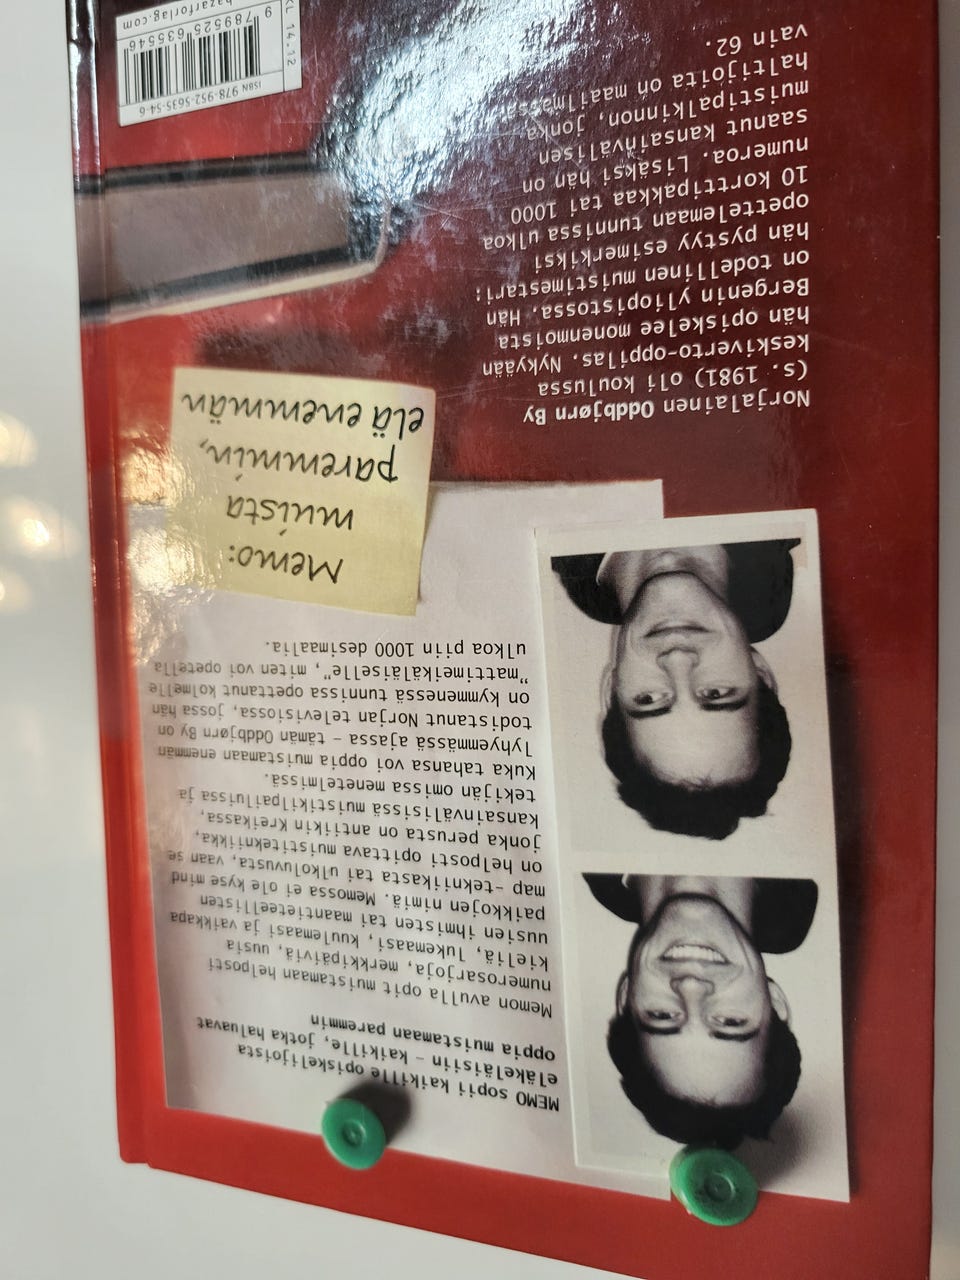 MEMO sopii kaikille opiskelijoista
eläkeläisiin – kaikille, jotka haluavat
oppia muistamaan paremmin
Memon avulla opit muistamaan helposti
numerosarjoja, merkkipäiviä, uusia
kieliä, lukemaasi, kuulemaasi ja vaikkapa
uusien ihmisten tai maantieteellisten
paikkojen nimiä. Memossa ei ole kyse mind
map -tekniikasta tai ulkoluvusta, vaan se
on helposti opittava muistitekniikka,
jonka perusta on antiikin Kreikassa,
kansainvälisissä muistikilpailuissa ja
tekijän omissa menetelmissä.
Kuka tahansa voi oppia muistamaan enemmän
lyhyemmässä ajassa – tämän Oddbjørn By on
todistanut Norjan televisiossa, jossa hän
on kymmenessä tunnissa opettanut kolmelle
”mattimeikäläiselle”, miten voi opetella
ulkoa piin 1000 desimaalia.
Memo:
muista
paremmin,
elä enemmän
Norjalainen Oddbjørn By
(s. 1981) oli koulussa
keskiverto-oppilas. Nykyään
hän opiskelee monenmoista
Bergenin yliopistossa. Hän
on todellinen muistimestari:
hän pystyy esimerkiksi
opettelemaan tunnissa ulkoa
10 korttipakkaa tai 1000
numeroa. Lisäksi hän on
saanut kansainvälisen
muistipalkinnon, jonka
haltijoita on maailmassa
vain 62.
ISBN 978-952-5635-54-6
9 789525 635546
KL 14.12
bazarforlag.com